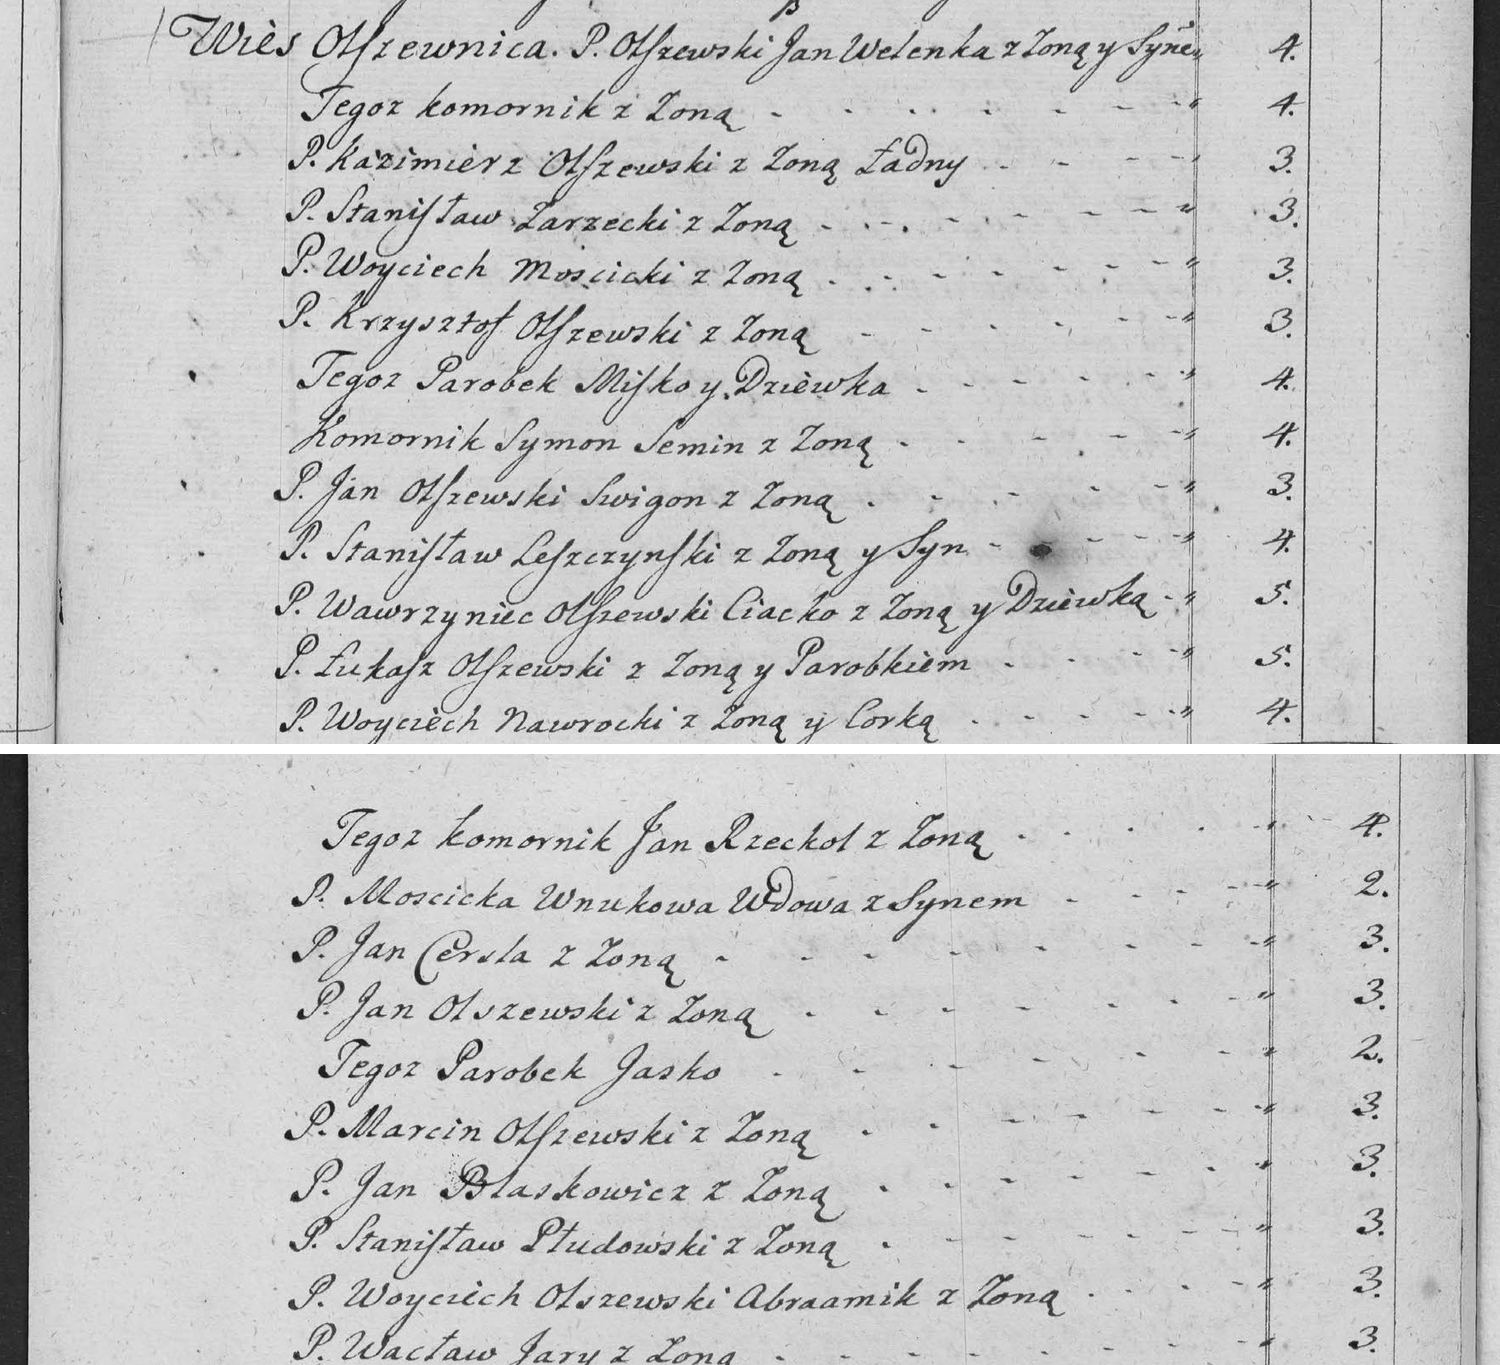 Wies Olszewnica. P. Olszewski Jan Welenka z Zoną y Syne 4.
Tegoz komornik z Zoną 4.
P. Kazimierz Olszewski z Zoną Ładny 3.
P. Stanisław Zarzecki z Zoną 3.
P. Woyciech Moscicki z Zoną 3.
P. Krzysztof Olszewski z Zoną 3.
Tegoz Parobek Misko y Dziewka 4.
Komornik Symon Semin z Zoną 4.
P. Jan Olszewski Swigon z Zoną 3.
P. Stanisław Leszczynski z Zoną y Syn 4.
P. Wawrzyniec Olszewski Ciacko z Zoną y Dziewką 5.
P. Łukasz Olszewski z Zoną y Parobkiem 5.
P. Woyciech Nawrocki z Zoną y Corką 4.
Tegoz komornik Jan Rzeckol z Zoną 4.
P. Moscicka Wnukowa Wdowa z Synem 2.
P. Jan Cersla z Zoną 3.
P. Jan Olszewski z Zoną 3.
Tegoz Parobek Jasko 2.
P. Marcin Olszewski z Zoną 3.
P. Jan Blaskowicz z Zoną 3.
P. Stanisław Płudowski z Zoną 3.
P. Woyciech Olszewski Abraamik z Zoną 3.
P. Wacław Jary z Zoną 3.